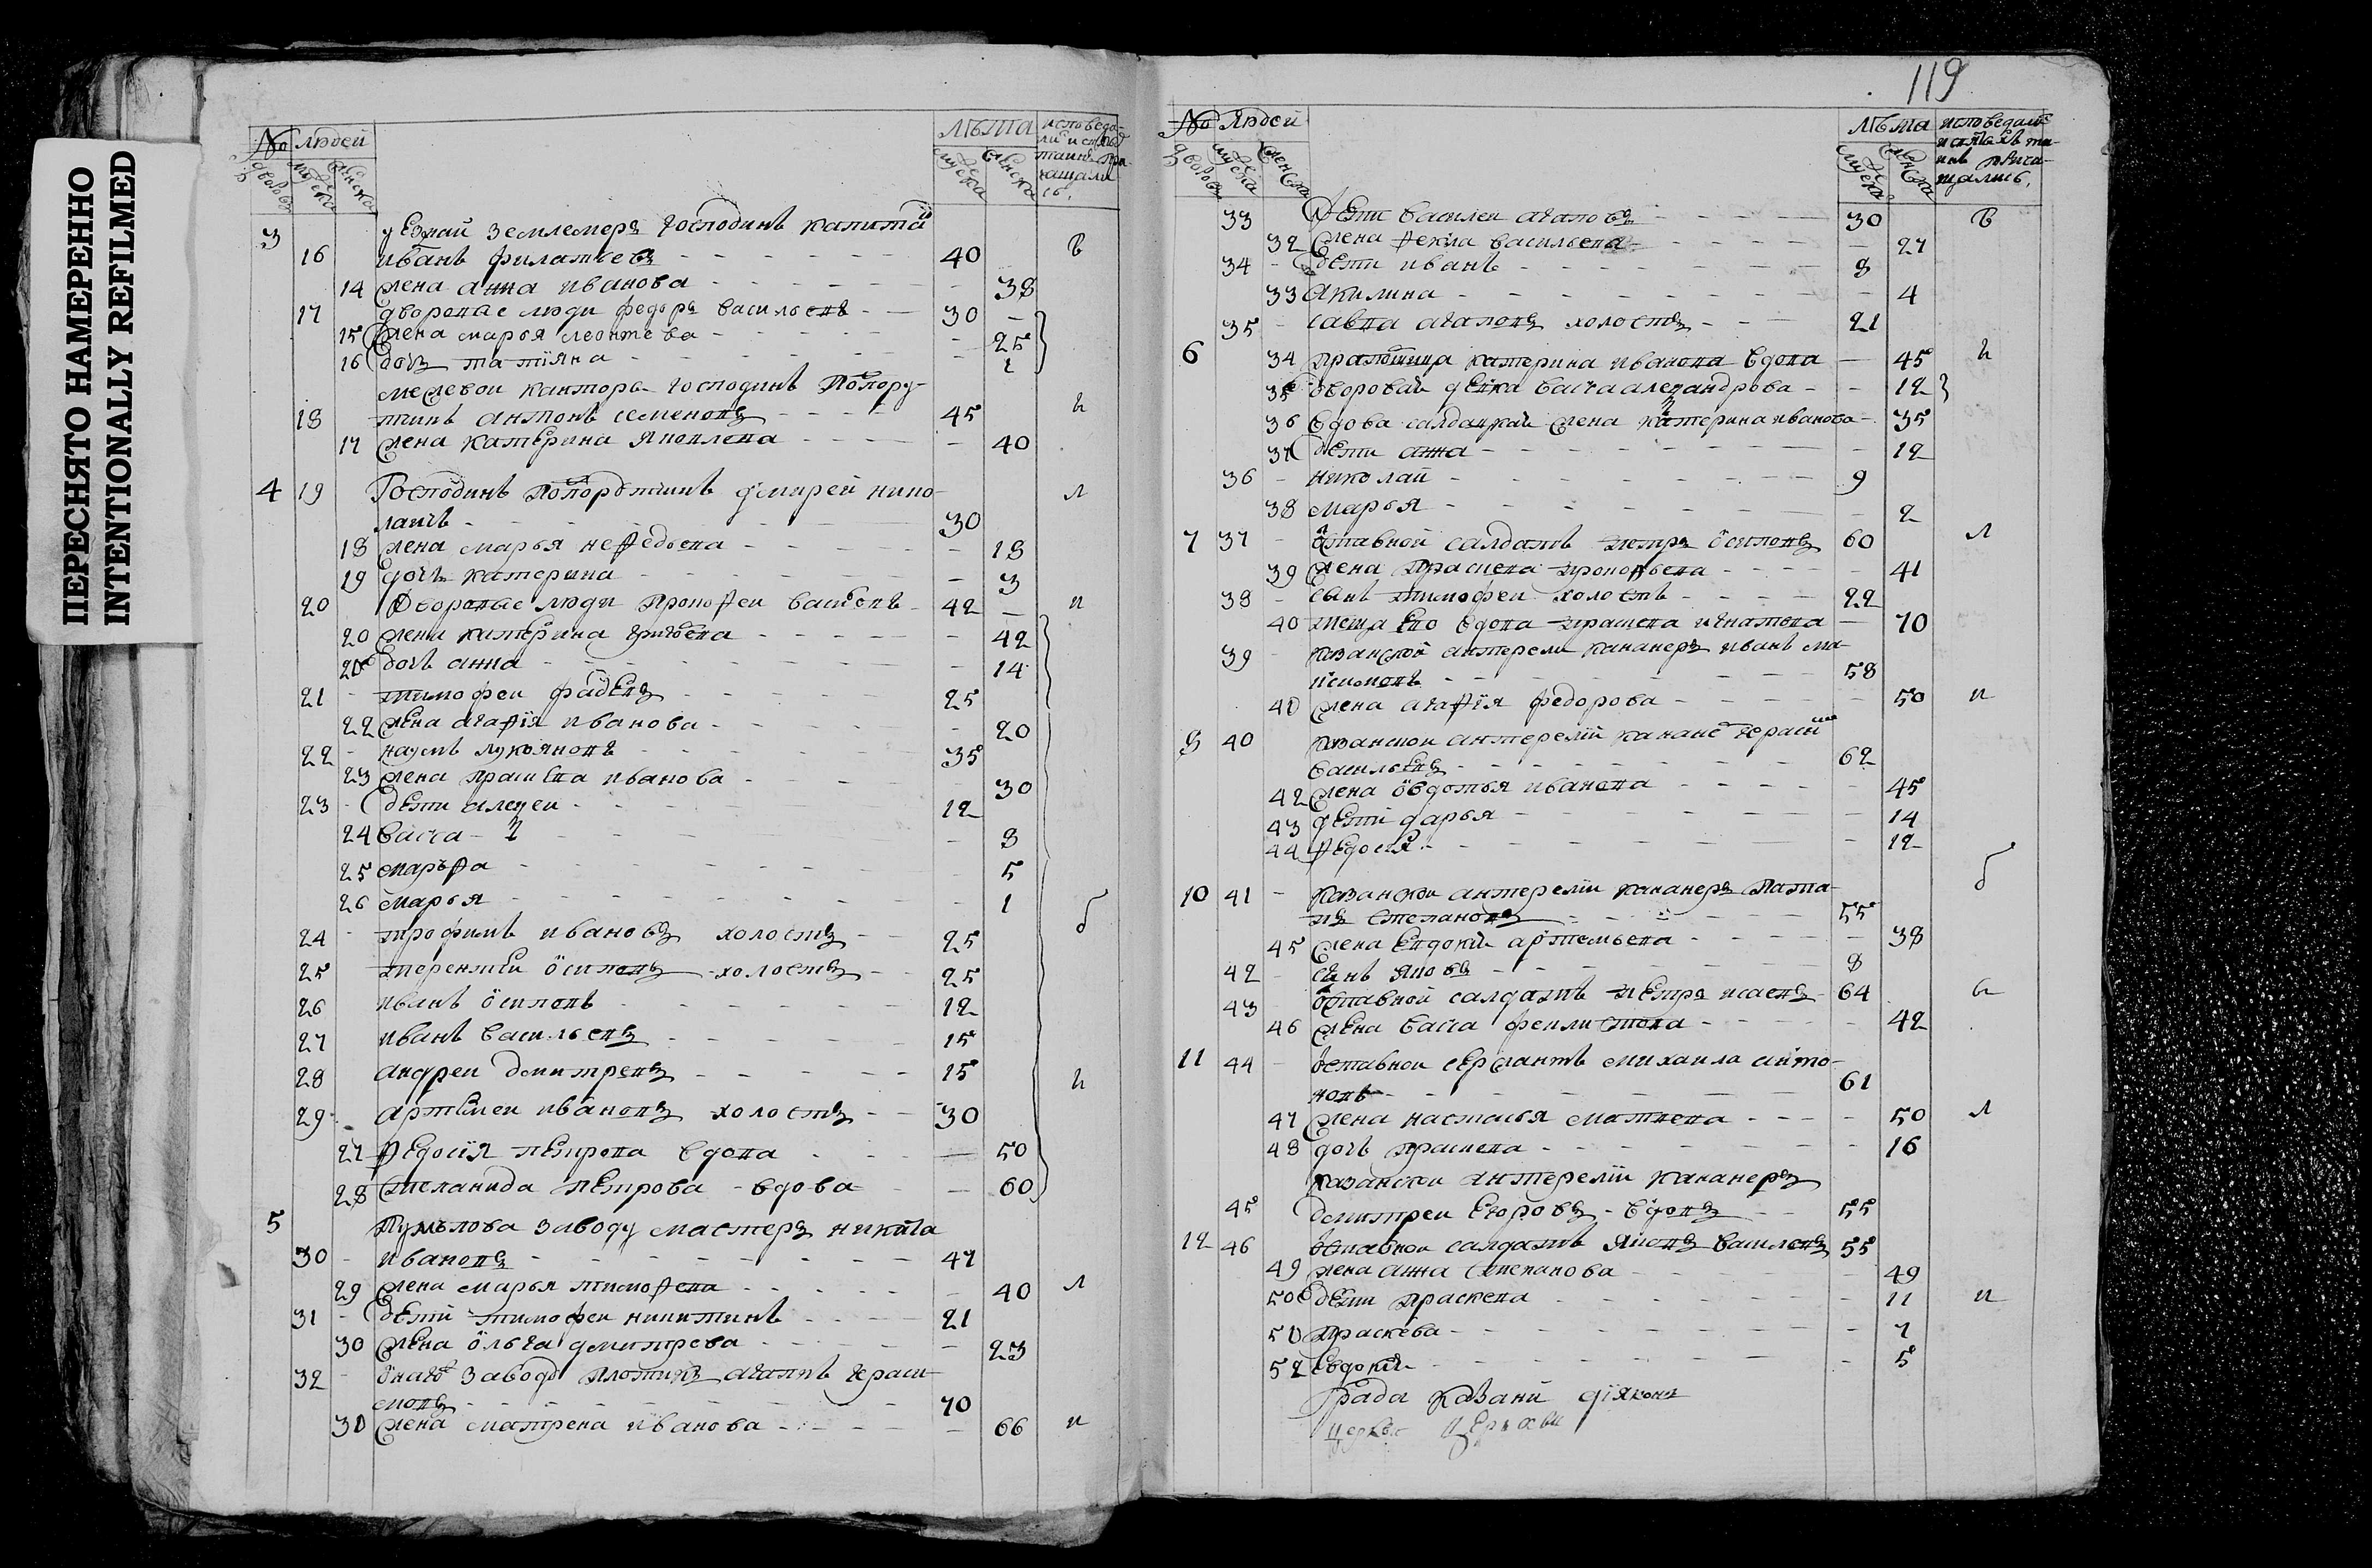 ПЕРЕСНЯТО НАМЕРЕННО
INTENTIONALLY REFILMED
№ людей лѣта
3 уезнай землемеръ господинъ капитан
16 иванъ филатьевъ 40 в
14 жена анна иванова 38
17 дворовые люди федоръ васильевъ 30
15 жена марья леонтева 25
16 дочь татияна 1
межевои канторы господинъ попору-
18 тчикъ антонъ семеновъ 45 и
17 жена катерина яковлева 40
4 19 Господинъ попорутчикъ дмитрей нико- л
лаичь 30
18 жена марья нефедьева 18
19 дочь катерина 3
20 Дворовые люди прокофеи васильевъ 42 и
20 жена катерина григорьева 42
20 дочь анна 14
21 тимофеи фадеевъ 25
22 жена агафия иванова 20
22 наумъ лукояновъ 35
23 жена прасковья иванова 30
23 дети алексеи 12
24 васса 8
25 марфа 5
26 марья 1
24 трофимъ ивановъ холостъ 25 б
25 терентеи осиповъ холостъ 25
26 иванъ осиповъ 12
27 иванъ васильевъ 15
28 андреи дмитревъ 15 и
29 артемеи ивановъ холостъ 30
27 федосия петрова вдова 50
28 степанида петрова вдова 60
5 заводу мастеръ никита
30 ивановъ 47
29 жена марья тимофева 40 л
31 дети тимофеи никитинъ 21
30 жена ольга дмитрева 23
32 онаго заводу плотникъ агапъ гераси-
мовъ 70
30 жена матрена иванова 66 и
119
№ людей лѣта
33 Дети василеи агаповъ 30 в
32 жена фекла васильева 27
34 дети иванъ 8
33 Акилина 4
35 савва агаповъ холостъ 21
6 34 катерина иванова вдова 45 и
35 дворовая девка васса александрова 12
36 вдова салдацкая жена катерина иванова 35
37 дети анна 12
36 николаи 9
38 марья 2
7 37 отставной салдатъ петръ осиповъ 60 л
39 жена прасковья прокофьева 41
38 сынъ тимофеи холостъ 22
40 теща ево вдова прасковья игнатева 70
39 казанской антерели кананеръ иванъ ма-
ксимовъ 58
40 жена агафия федорова 50 и
9 40 казанской антерелии кананеръ герасим
васильевъ 62
42 жена овдотья иванова 45
43 дети дарья 14
44 федосия 12
10 41 казанской антерелии кананеръ пота- б
пъ степановъ 55
45 жена евдокия артемьева 38
42 сынъ яковъ 8
43 отставной салдатъ петръ исаевъ 64 в
46 жена васса феклистова 42
11 44 отставнои сержантъ михаила анто-
новъ 61
47 жена насталья матвева 50 л
48 дочь прасковья 16
казанской антерелии кананеръ
45 дмитреи егоровъ вдовъ 55
12 46 отставнои салдатъ яковъ васильевъ 55
49 жена анна степанова 49
50 дети праскева 11 и
50 праскева 7
52 евдокия 5
Града Казани дияконъ
церкви